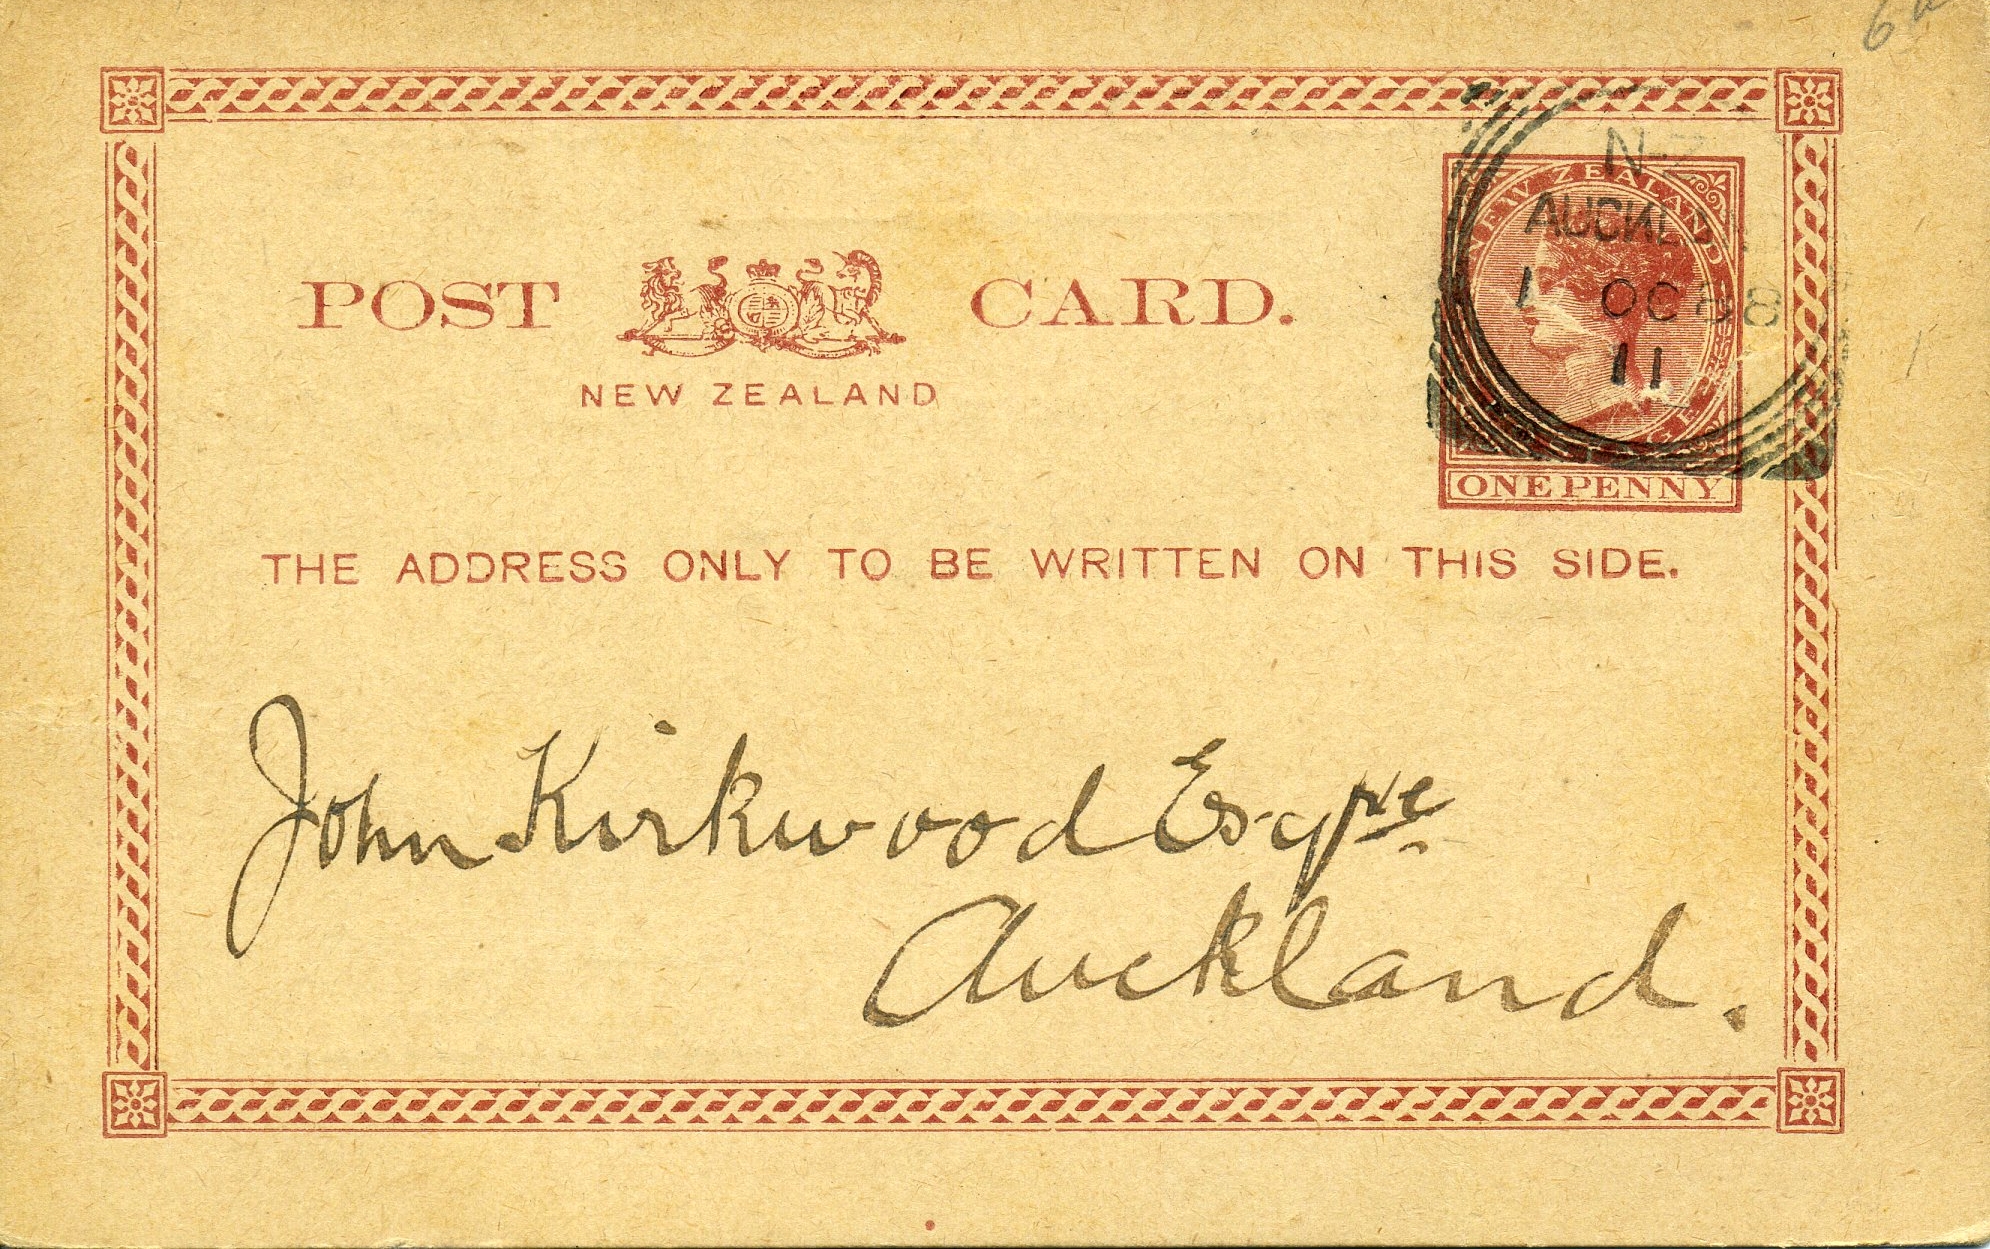 N·Z
NEW ZEALAND
AUCKLD
1 OC 88
11
POST CARD.
NEW ZEALAND
ONE PENNY
THE ADDRESS ONLY TO BE WRITTEN ON THIS SIDE.
John Kirkwood Esqre
Auckland.